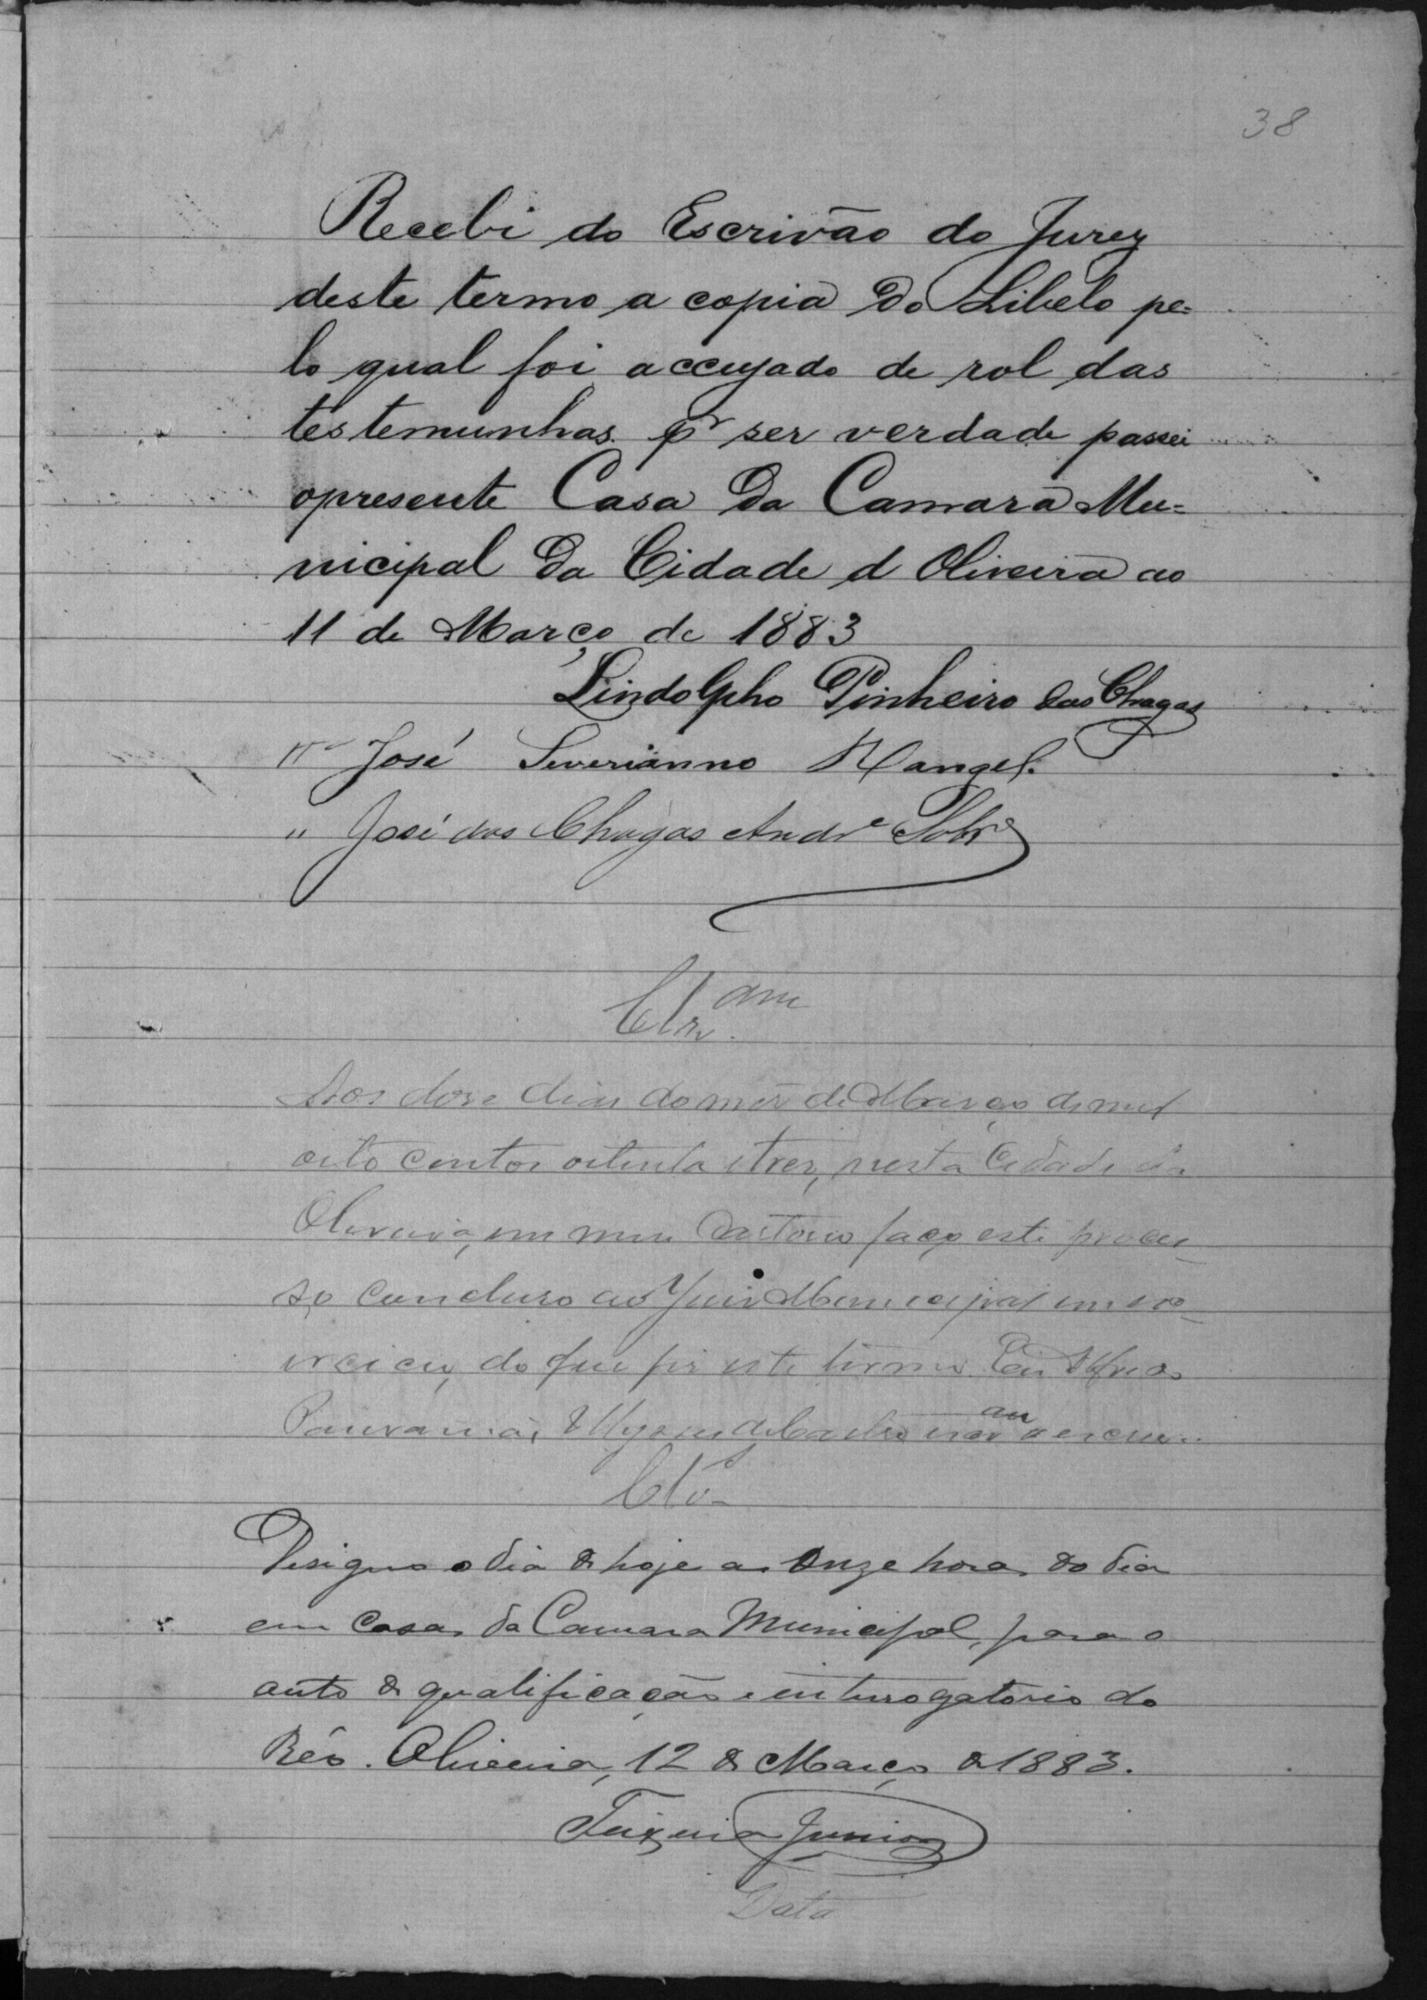 38
Recebi do Escrivão do Jurey
deste termo a copia do Libelo pe=
lo qual foi accuzado de rol das
testemunhas. pr ser verdade passei
opresente Casa da Camara Mu=
nicipal da Cidade d Oliveira ao
11 de Março de 1883
Lindolpho Pinheiro das Chagas
José Severianno Rangel.
" José das Chagas Andre Sobro
Clzam
Aos dose dias do mês de Março de mil
oito centos oitenta e tres, nesta Cidade da
Oliveira, em meu Cartorio faço este proces_
so concluso ao Juis Municipal em exe_
rcicio, do que fis este termo. Eu
de Castro escrivam o escrevi.
Clos
Designo o dia de hoje as Onze horas do dia
em casa da Camara Municipal, para o
auto de qualificação e interrogatorio do
Réo. Oliveira, 12 de Março de 1883.
Teixeira Junior
Data